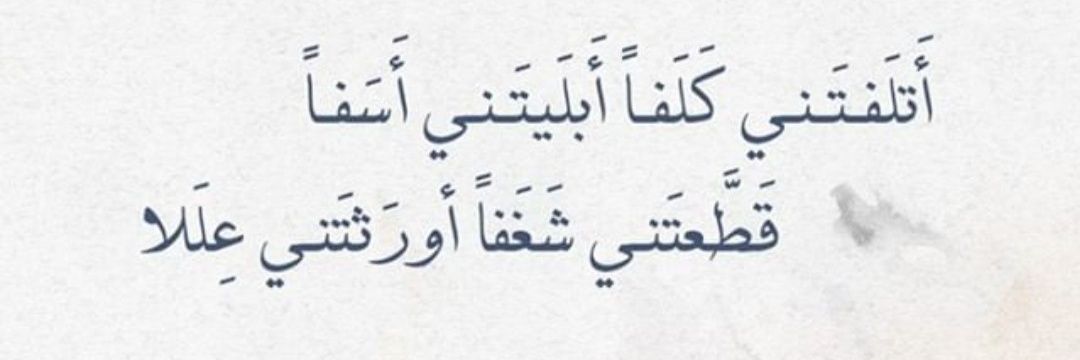 أَتلَفتَني كَلَفاً أَبلَيتَني أَسَفاً
قَطَّعتَني شَغَفاً أورَثتَني عِلَلا